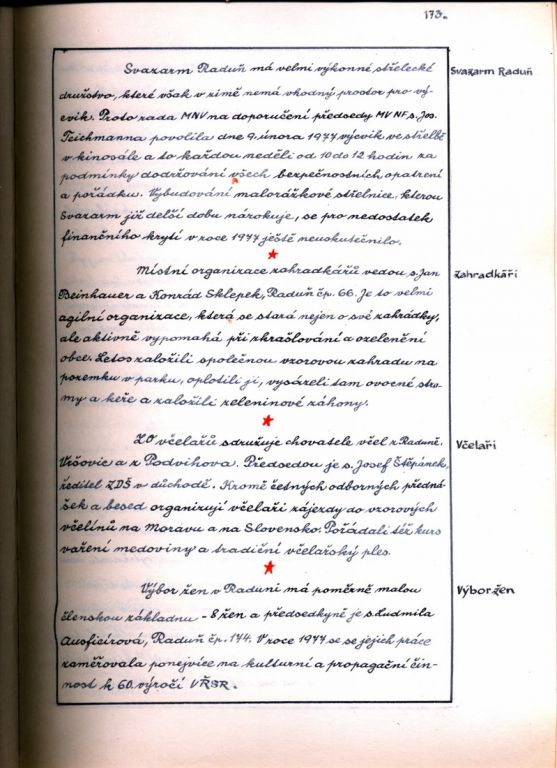 173.
Svazarm Raduň
Svazarm Raduň má velmi výkonné střelecké
družstvo, které však v zimě nemá vhodný prostor pro vý-
cvik. Proto rada MNV na doporučení předsedy MV NF s. Jos.
Teichmanna povolila dne 9. února 1977 výcvik ve střelbě
v kinosále a to každou neděli od 10 do 12 hodin za
podmínky dodržování všech bezpečnostních opatření
a pořádku. Vybudování malorážkové střelnice, kterou
Svazarm již delší dobu nárokuje, se pro nedostatek
finančního krytí v roce 1977 ještě neuskutečnilo.
Zahrádkáři
Místní organizace zahrádkářů vedou s. Jan
Beinhauer a Konrád Sklepek, Raduň čp. 66. Je to velmi
agilní organizace, která se stará nejen o své zahrádky,
ale aktivně vypomáhá při zkrášlování a ozelenění
obce. Letos založili společnou vzorovou zahradu na
pozemku v parku, oplotili ji, vysázeli tam ovocné stro-
my a keře a založili zeleninové záhony.
Včelaři
ZO včelařů sdružuje chovatele včel z Raduně,
Vršovic a z Podvihova. Předsedou je s. Josef Štěpánek,
ředitel ZDŠ v důchodě. Kromě četných odborných předná-
šek a besed organizují včelaři zájezdy do vzorových
včelínů na Moravu a na Slovensko. Pořádali též kurs
vaření medoviny a tradiční včelařský ples.
Výbor žen
Výbor žen v Raduni má poměrně malou
členskou základnu - 8 žen a předsedkyně je s. Ludmila
Ausficírová, Raduň čp. 174. V roce 1977 se se jejich práce
zaměřovala ponejvíce na kulturní a propagační čin-
nost k 60. výročí VŘSR.